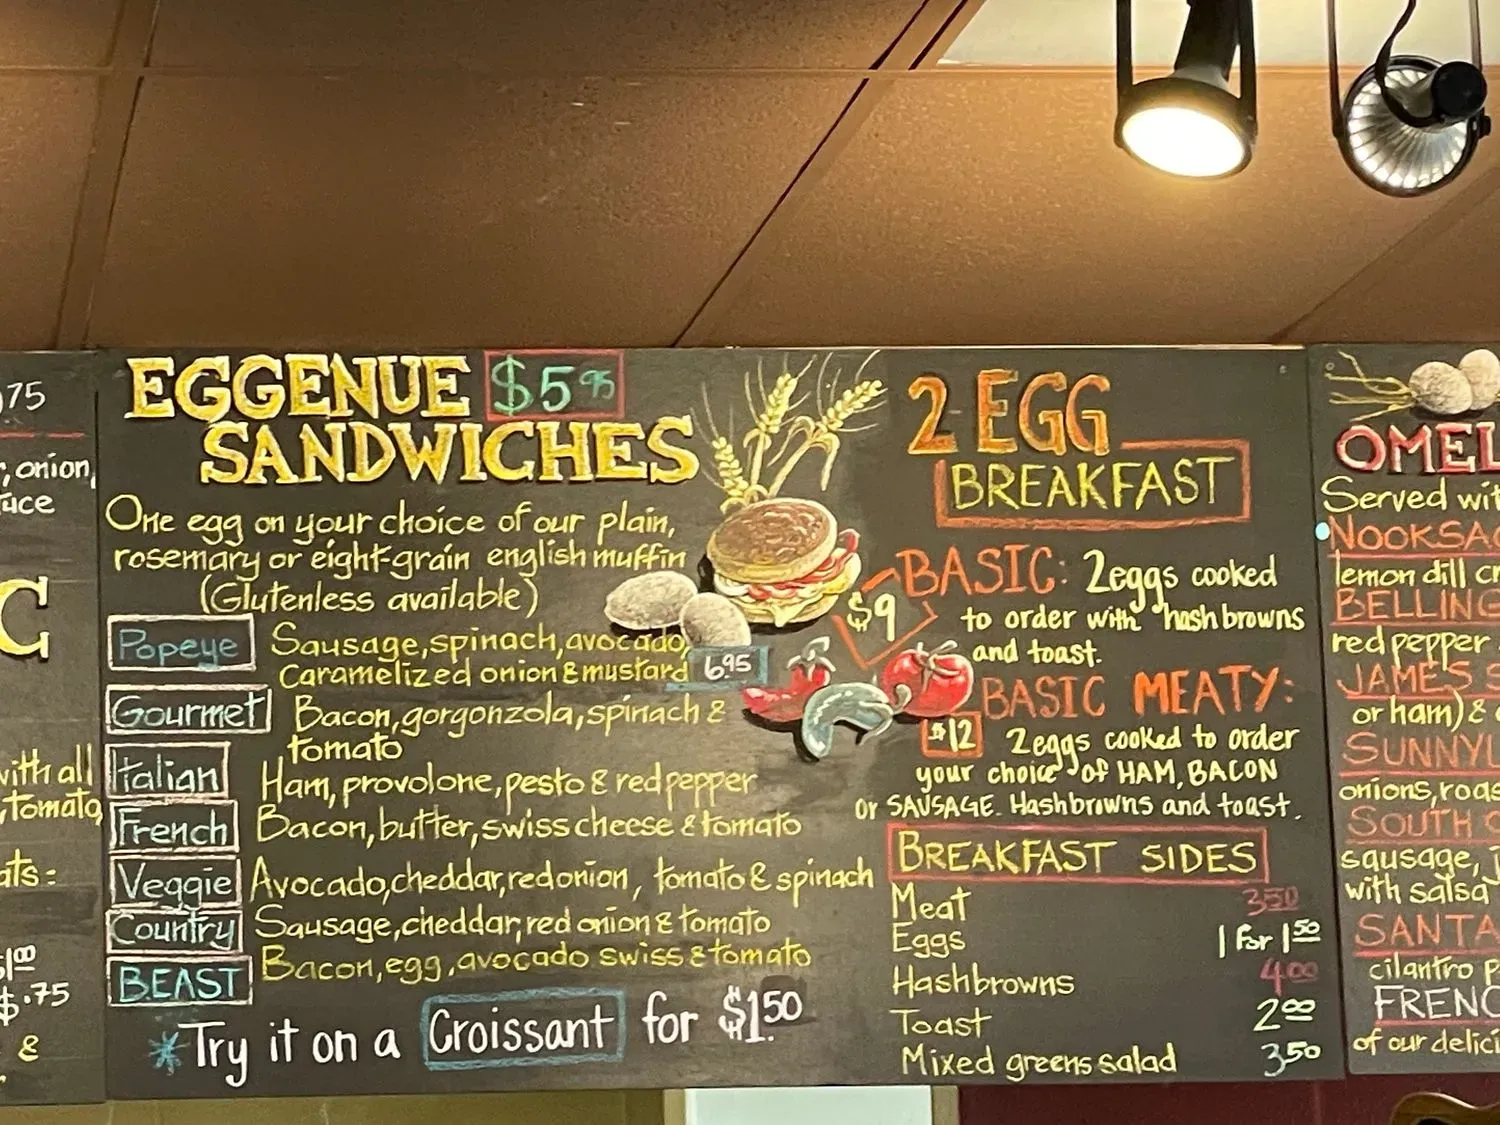 .75
, onion,
uce
C
with all
, tomato,
ats:
$1.00
$.75
&
EGGENUE $5.95
SANDWICHES
One egg on your choice of our plain,
rosemary or eight-grain english muffin
(Glutenless available)
Popeye Sausage, spinach, avocado,
Caramelized onion & mustard 6.95
Gourmet Bacon, gorgonzola, spinach &
tomato
Italian Ham, provolone, pesto & red pepper
French Bacon, butter, swiss cheese & tomato
Veggie Avocado, cheddar, red onion, tomato & spinach
Country Sausage, cheddar, red onion & tomato
BEAST Bacon, egg, avocado swiss & tomato
*Try it on a Croissant for $1.50
2 EGG
BREAKFAST
BASIC: 2 eggs cooked
$9 to order with hashbrowns
and toast.
BASIC MEATY:
$12 2 eggs cooked to order
your choice of HAM, BACON
or SAUSAGE. Hashbrowns and toast.
BREAKFAST SIDES
Meat 3.50
Eggs 1 for 1.50
Hashbrowns 4.00
Toast 2.00
Mixed greens salad 3.50
OMEL
Served wit
NOOKSAC
lemon dill cr
BELLING
red pepper
JAMES S
or ham) &
SUNNYL
onions, roas
SOUTH
sausage, j
with salsa
SANTA
cilantro p
FRENC
of our delici